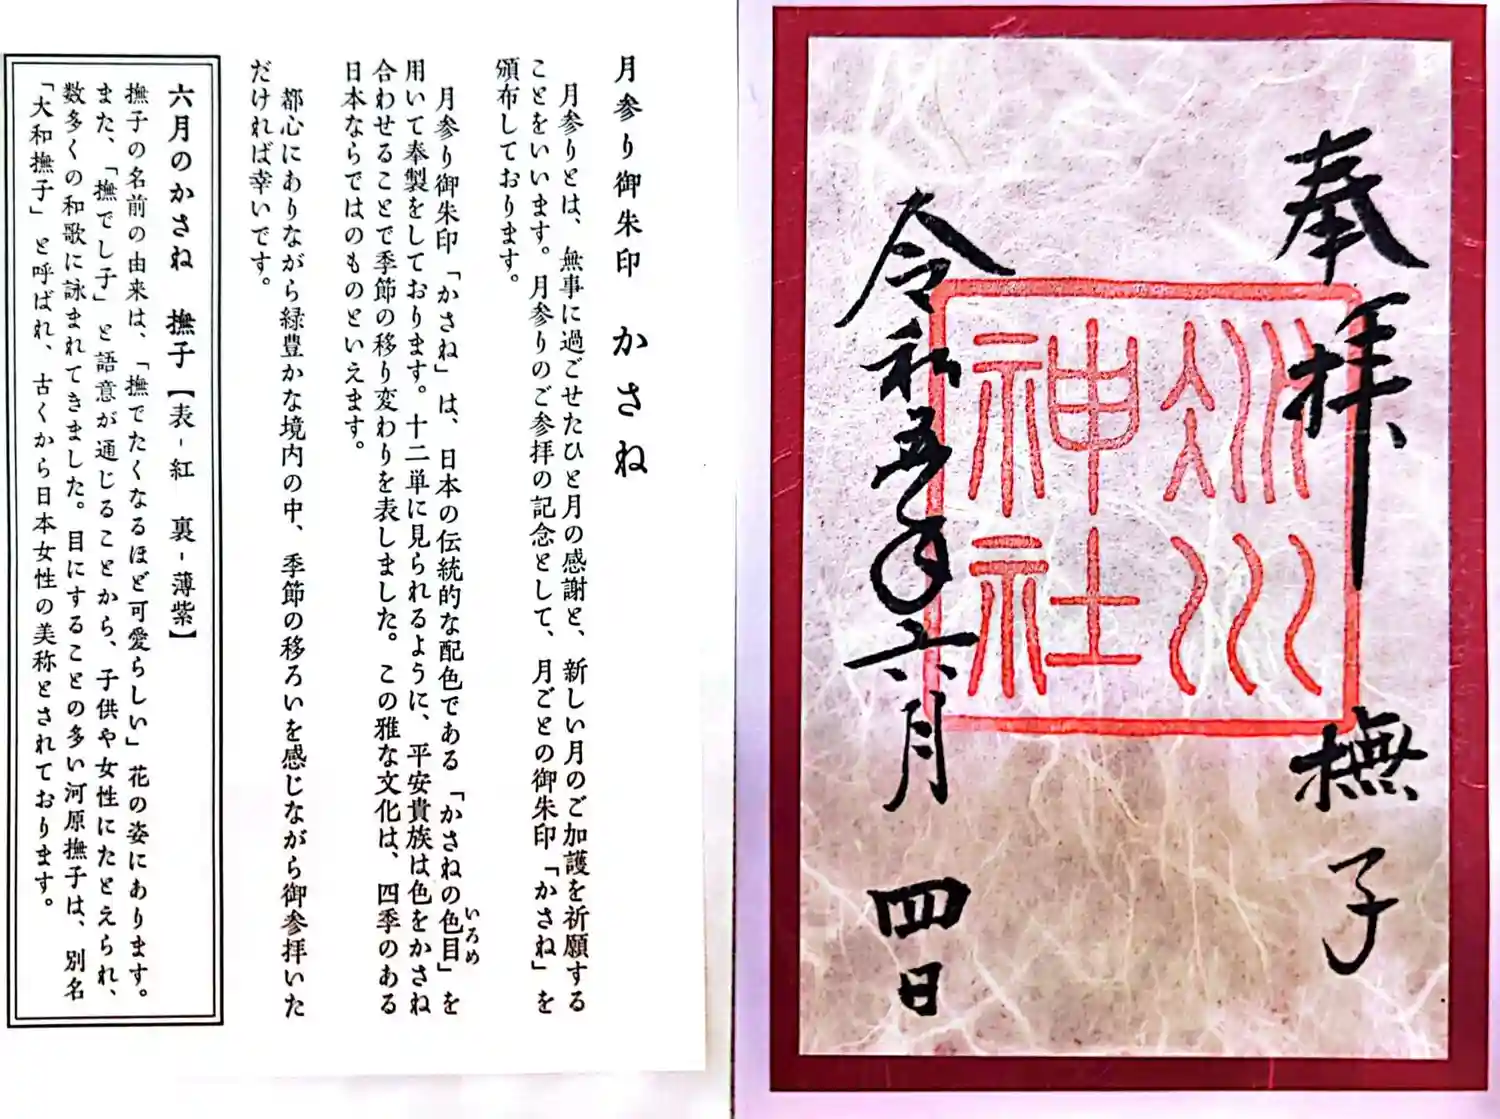 奉拝 撫子
氷川
神社
令和五年六月四日
月参り御朱印 かさね
月参りとは、無事に過ごせたひと月の感謝と、新しい月のご加護を祈願する
ことをいいます。月参りのご参拝の記念として、月ごとの御朱印「かさね」を
頒布しております。
月参り御朱印「かさね」は、日本の伝統的な配色である「かさねの色目」を
いろめ
用いて奉製をしております。十二単に見られるように、平安貴族は色をかさね
合わせることで季節の移り変わりを表しました。この雅な文化は、四季のある
日本ならではのものといえます。
都心にありながら緑豊かな境内の中、季節の移ろいを感じながら御参拝いた
だければ幸いです。
六月のかさね 撫子【表-紅 裏-薄紫】
撫子の名前の由来は、「撫でたくなるほど可愛らしい」花の姿にあります。
また、「撫でし子」と語意が通じることから、子供や女性にたとえられ、
数多くの和歌に詠まれてきました。目にすることの多い河原撫子は、別名
「大和撫子」と呼ばれ、古くから日本女性の美称とされております。